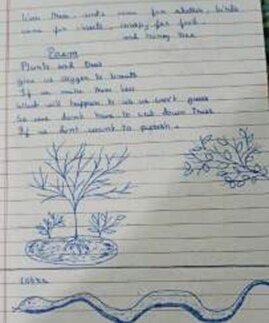 for shelter, birds
for insects, for food
and honey bee
Poem
Plants and trees
give us oxygen to breath
If we make them less
What will happen to us we can't guess
So we don't have to cut down trees
If we dont want to perish.
Cobra